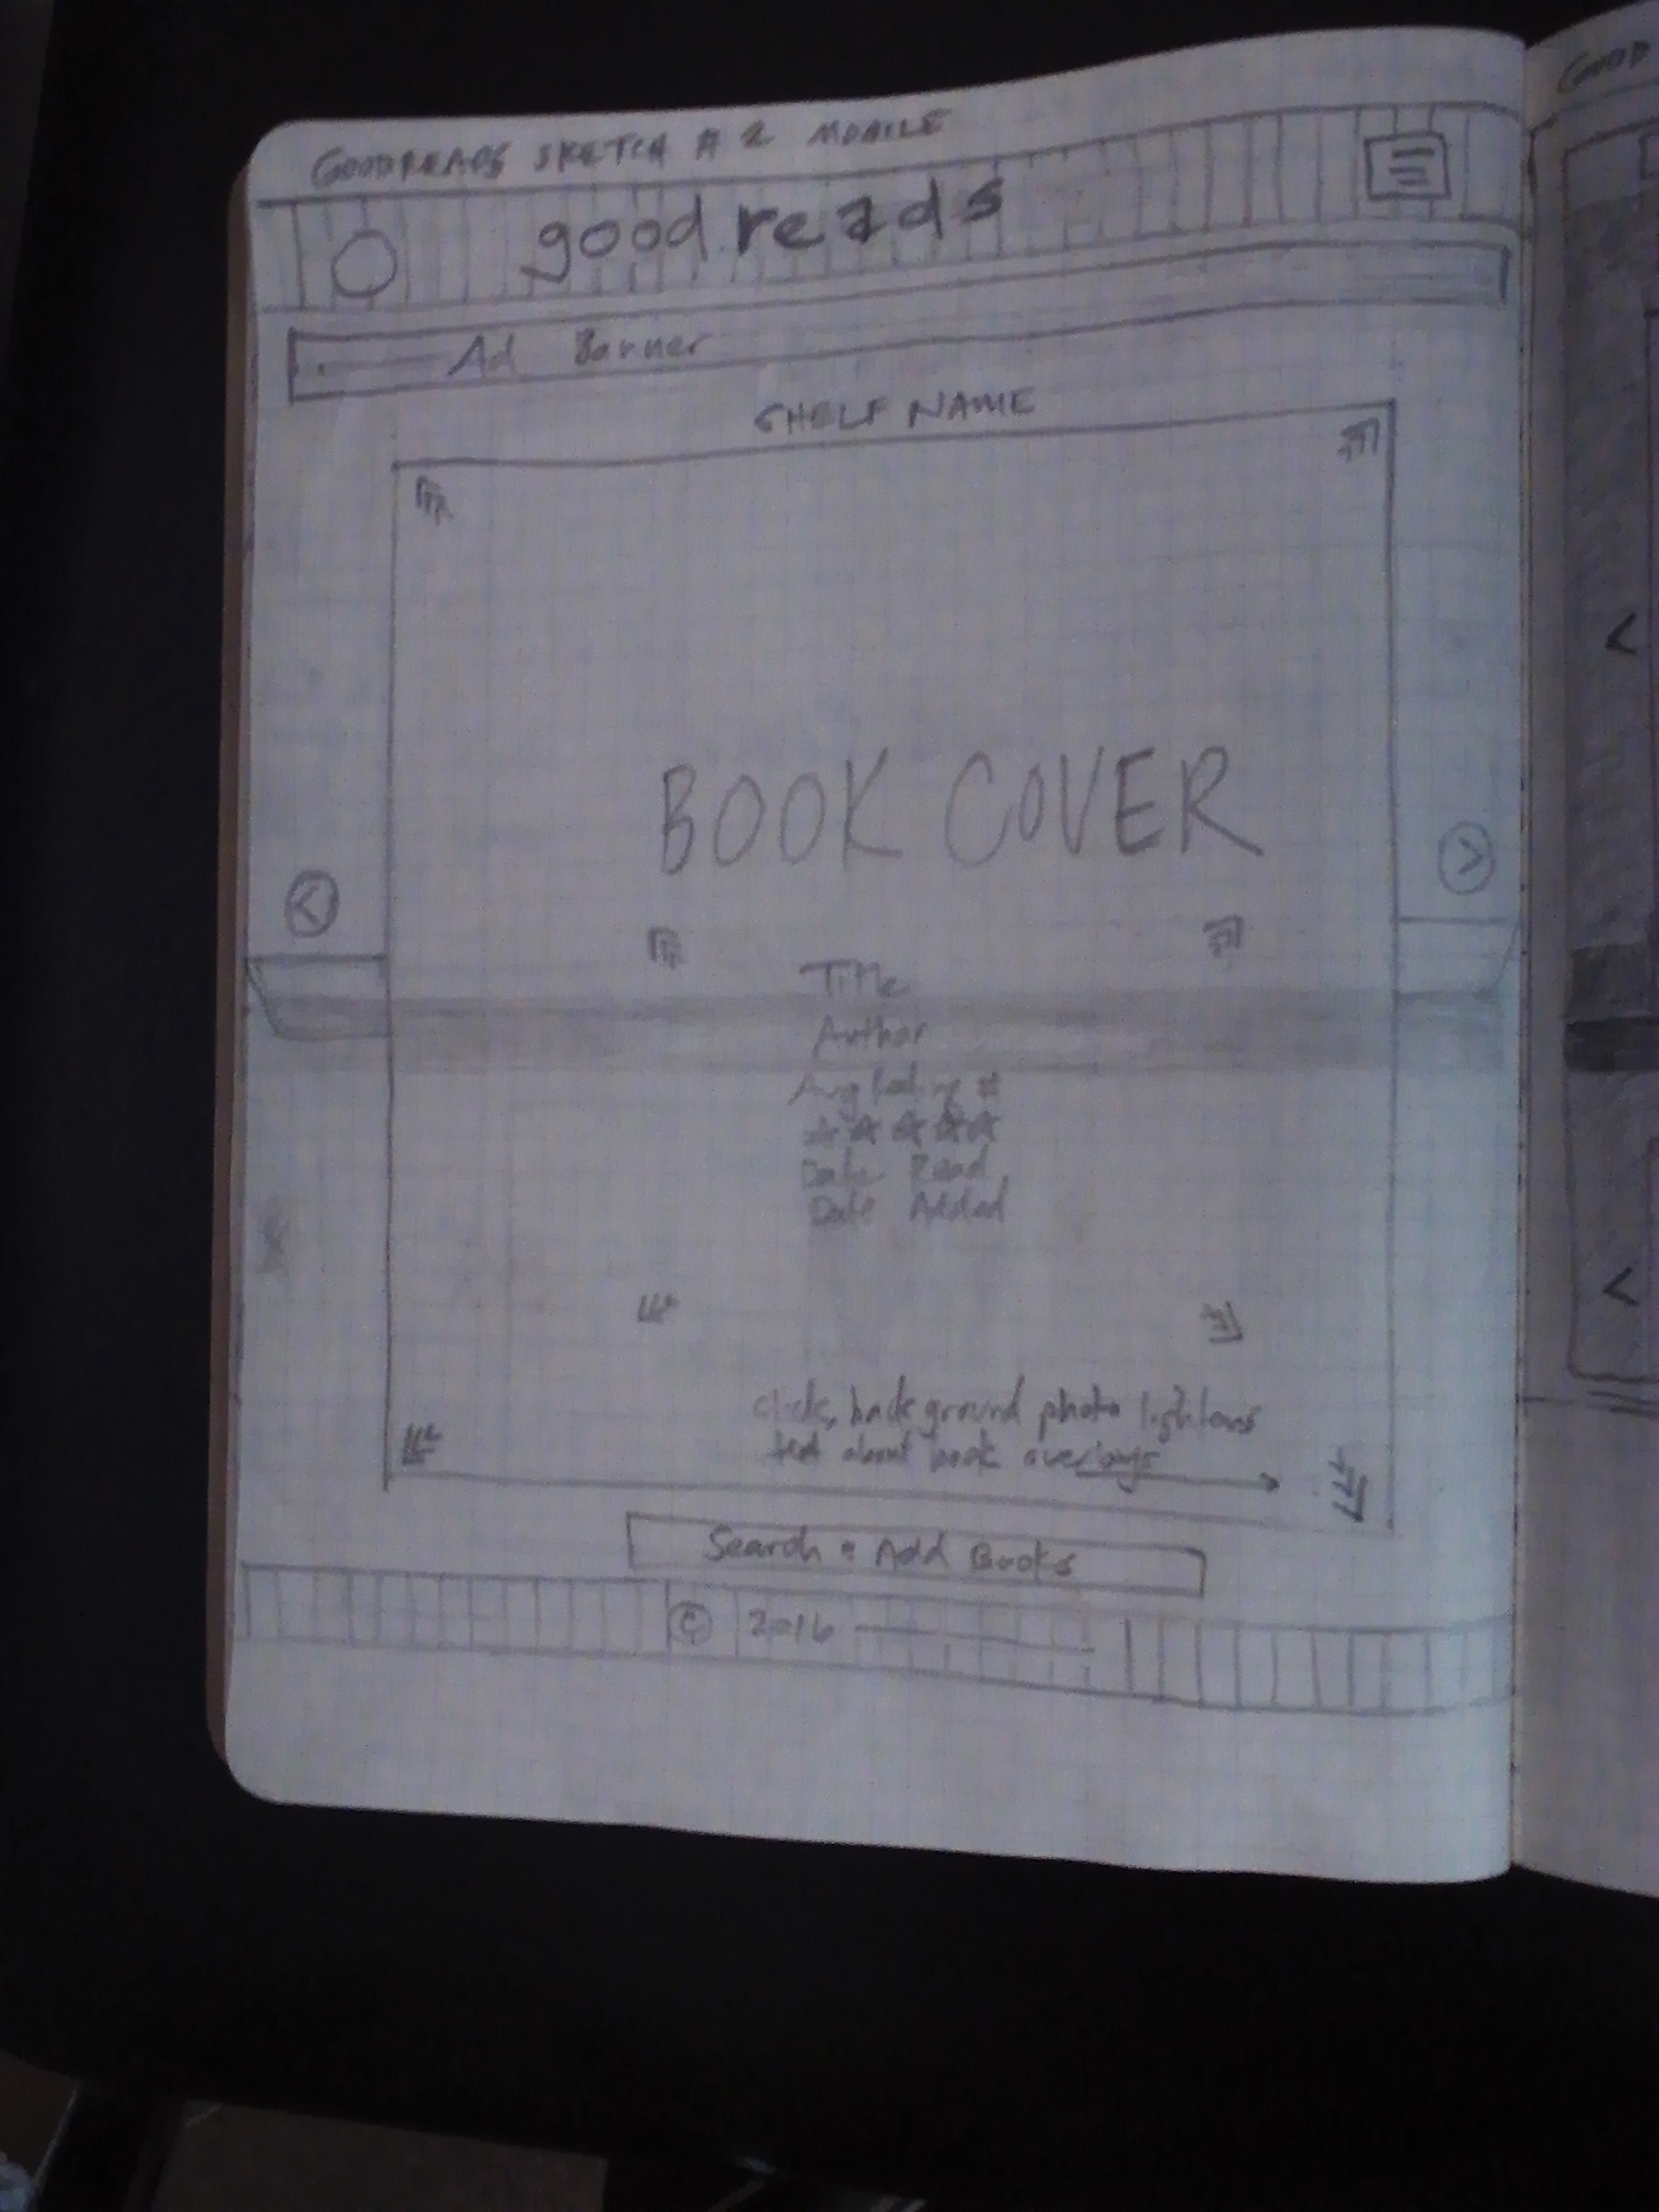 GOODREADS SKETCH # 2 MOBILE
goodreads
Ad Banner
SHELF NAME
BOOK COVER
<
>
Title
Author
Avg Rating #
☆ ☆ ☆ ☆ ☆
Date Read
Date Added
click, background photo lightens
text about book overlays
Search + Add Books
© 2016
GOOD
<
<